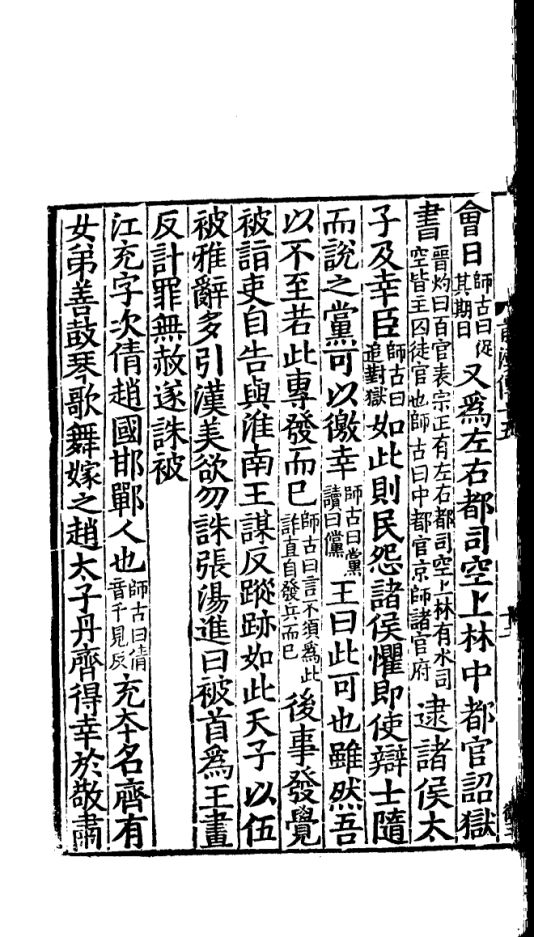 會日師古曰促其期日又爲左右都司空上林中都官詔獄
書晉灼曰百官表宗正有左右都司空上林有水司空皆主囚徒官也師古曰中都官京師諸官府逮諸侯太
子及幸臣師古曰追對獄如此則民怨諸侯懼即使辯士隨
而說之黨可以徼幸師古曰黨讀曰儻王曰此可也雖然吾
以不至若此專發而已師古曰言不須爲此詐直自發兵而已後事發覺
被詣吏自告與淮南王謀反蹤跡如此天子以伍
被雅辭多引漢美欲勿誅張湯進曰被首爲王畫
反計罪無赦遂誅被
江充字次倩趙國邯鄲人也師古曰倩音千見反充夲名齊有
女弟善鼓琴歌舞嫁之趙太子丹齊得幸於敬肅